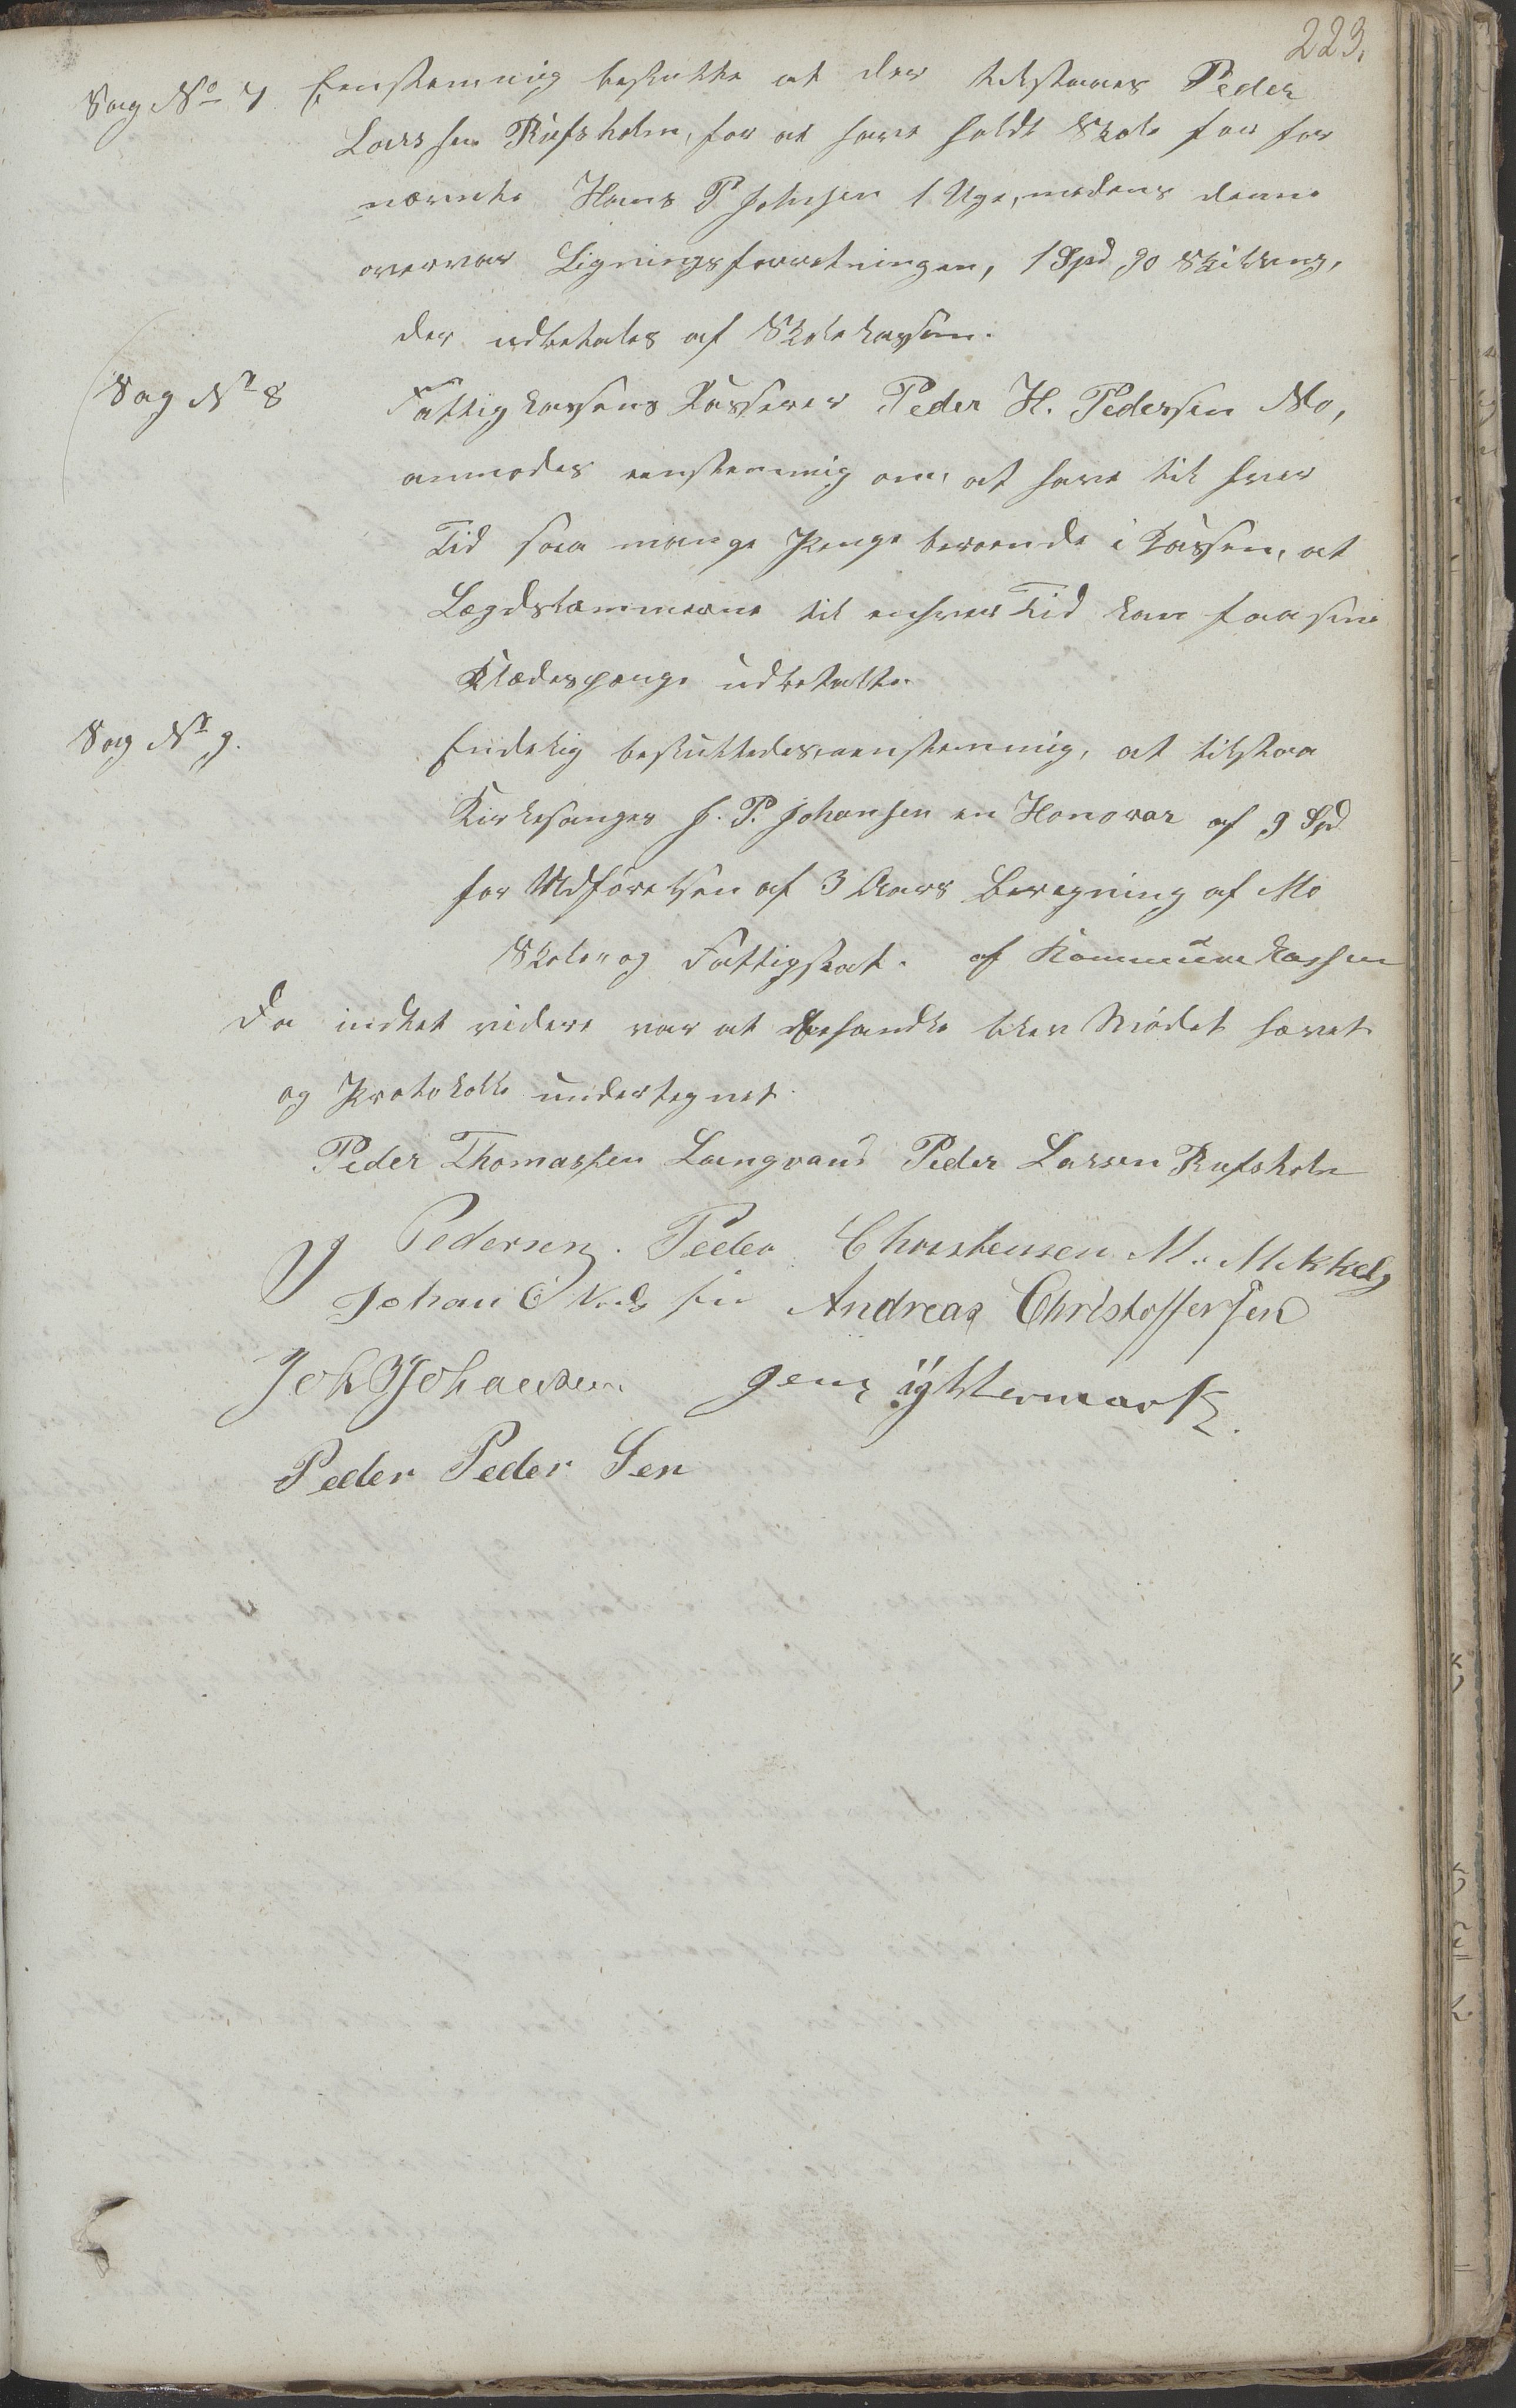 223.
Sag No 7 Eenstemmig beslutte at der tilstaaes Peder
Larssen Rufsholm, for at have holdt Skole for for
nævnte Hans P Johnsen 1 Uge, medens denne
overvar Ligningsforretningen, 1 Spd 90 Skilling,
der udbetales af Skolekassen.
Sag Nr 8 Fattigkassens Kasserer Peder H. Pedersen Mo,
anmodes eenstemmig om, at have til hver
Tid saa mange Penge beroende i Kassen, at
Lægdslemmerne til enhver Tid kan faa sine
Klædespenge udbetalte.
Sag Nr 9. Endelig besluttedes, eenstemmig, at tilstaa
Kirkesanger J. P. Johansen en Honorar af 9 Spd
for Udførelsen af 3 Aars Beregning af Mo
Skole- og Fattigskat. af Kommunekassen
Da indtet videre var at behandle blev Mødet hævet
og Protokolle undertegnet.
Peder Thomassen Langvand Peder Larsen Rufsholm
J Pedersen. Peder Christensen M. Mikkels
Johan O Andr sen Andreas Christoffersen
Joh Johansen Jens Ÿttermark.
Peder Peder Sen